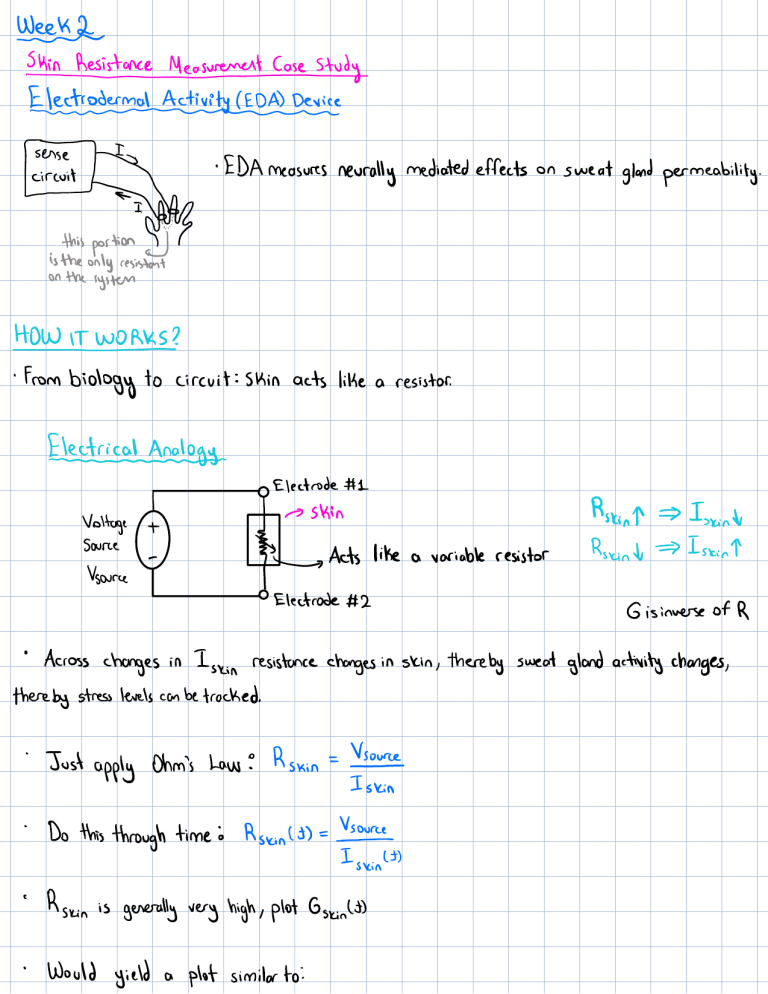 Week 2
Skin Resistance Measurement Case Study
Electrodermal Activity (EDA) Device
sense
circuit
I
I
· EDA measures neurally mediated effects on sweat gland permeability.
this portion
is the only resistant
on the system
HOW IT WORKS?
· From biology to circuit: skin acts like a resistor.
Electrical Analogy
Electrode #1
→ skin
Voltage
Source
Vsource
+
−
→ Acts like a variable resistor
Electrode #2
Rskin↑ ⇒ Iskin↓
Rskin↓ ⇒ Iskin↑
G is inverse of R
· Across changes in Iskin resistance changes in skin, thereby sweat gland activity changes,
thereby stress levels can be tracked.
· Just apply Ohm's Law: Rskin = Vsource / Iskin
· Do this through time: Rskin(t) = Vsource / Iskin(t)
· Rskin is generally very high, plot Gskin(t)
· Would yield a plot similar to: